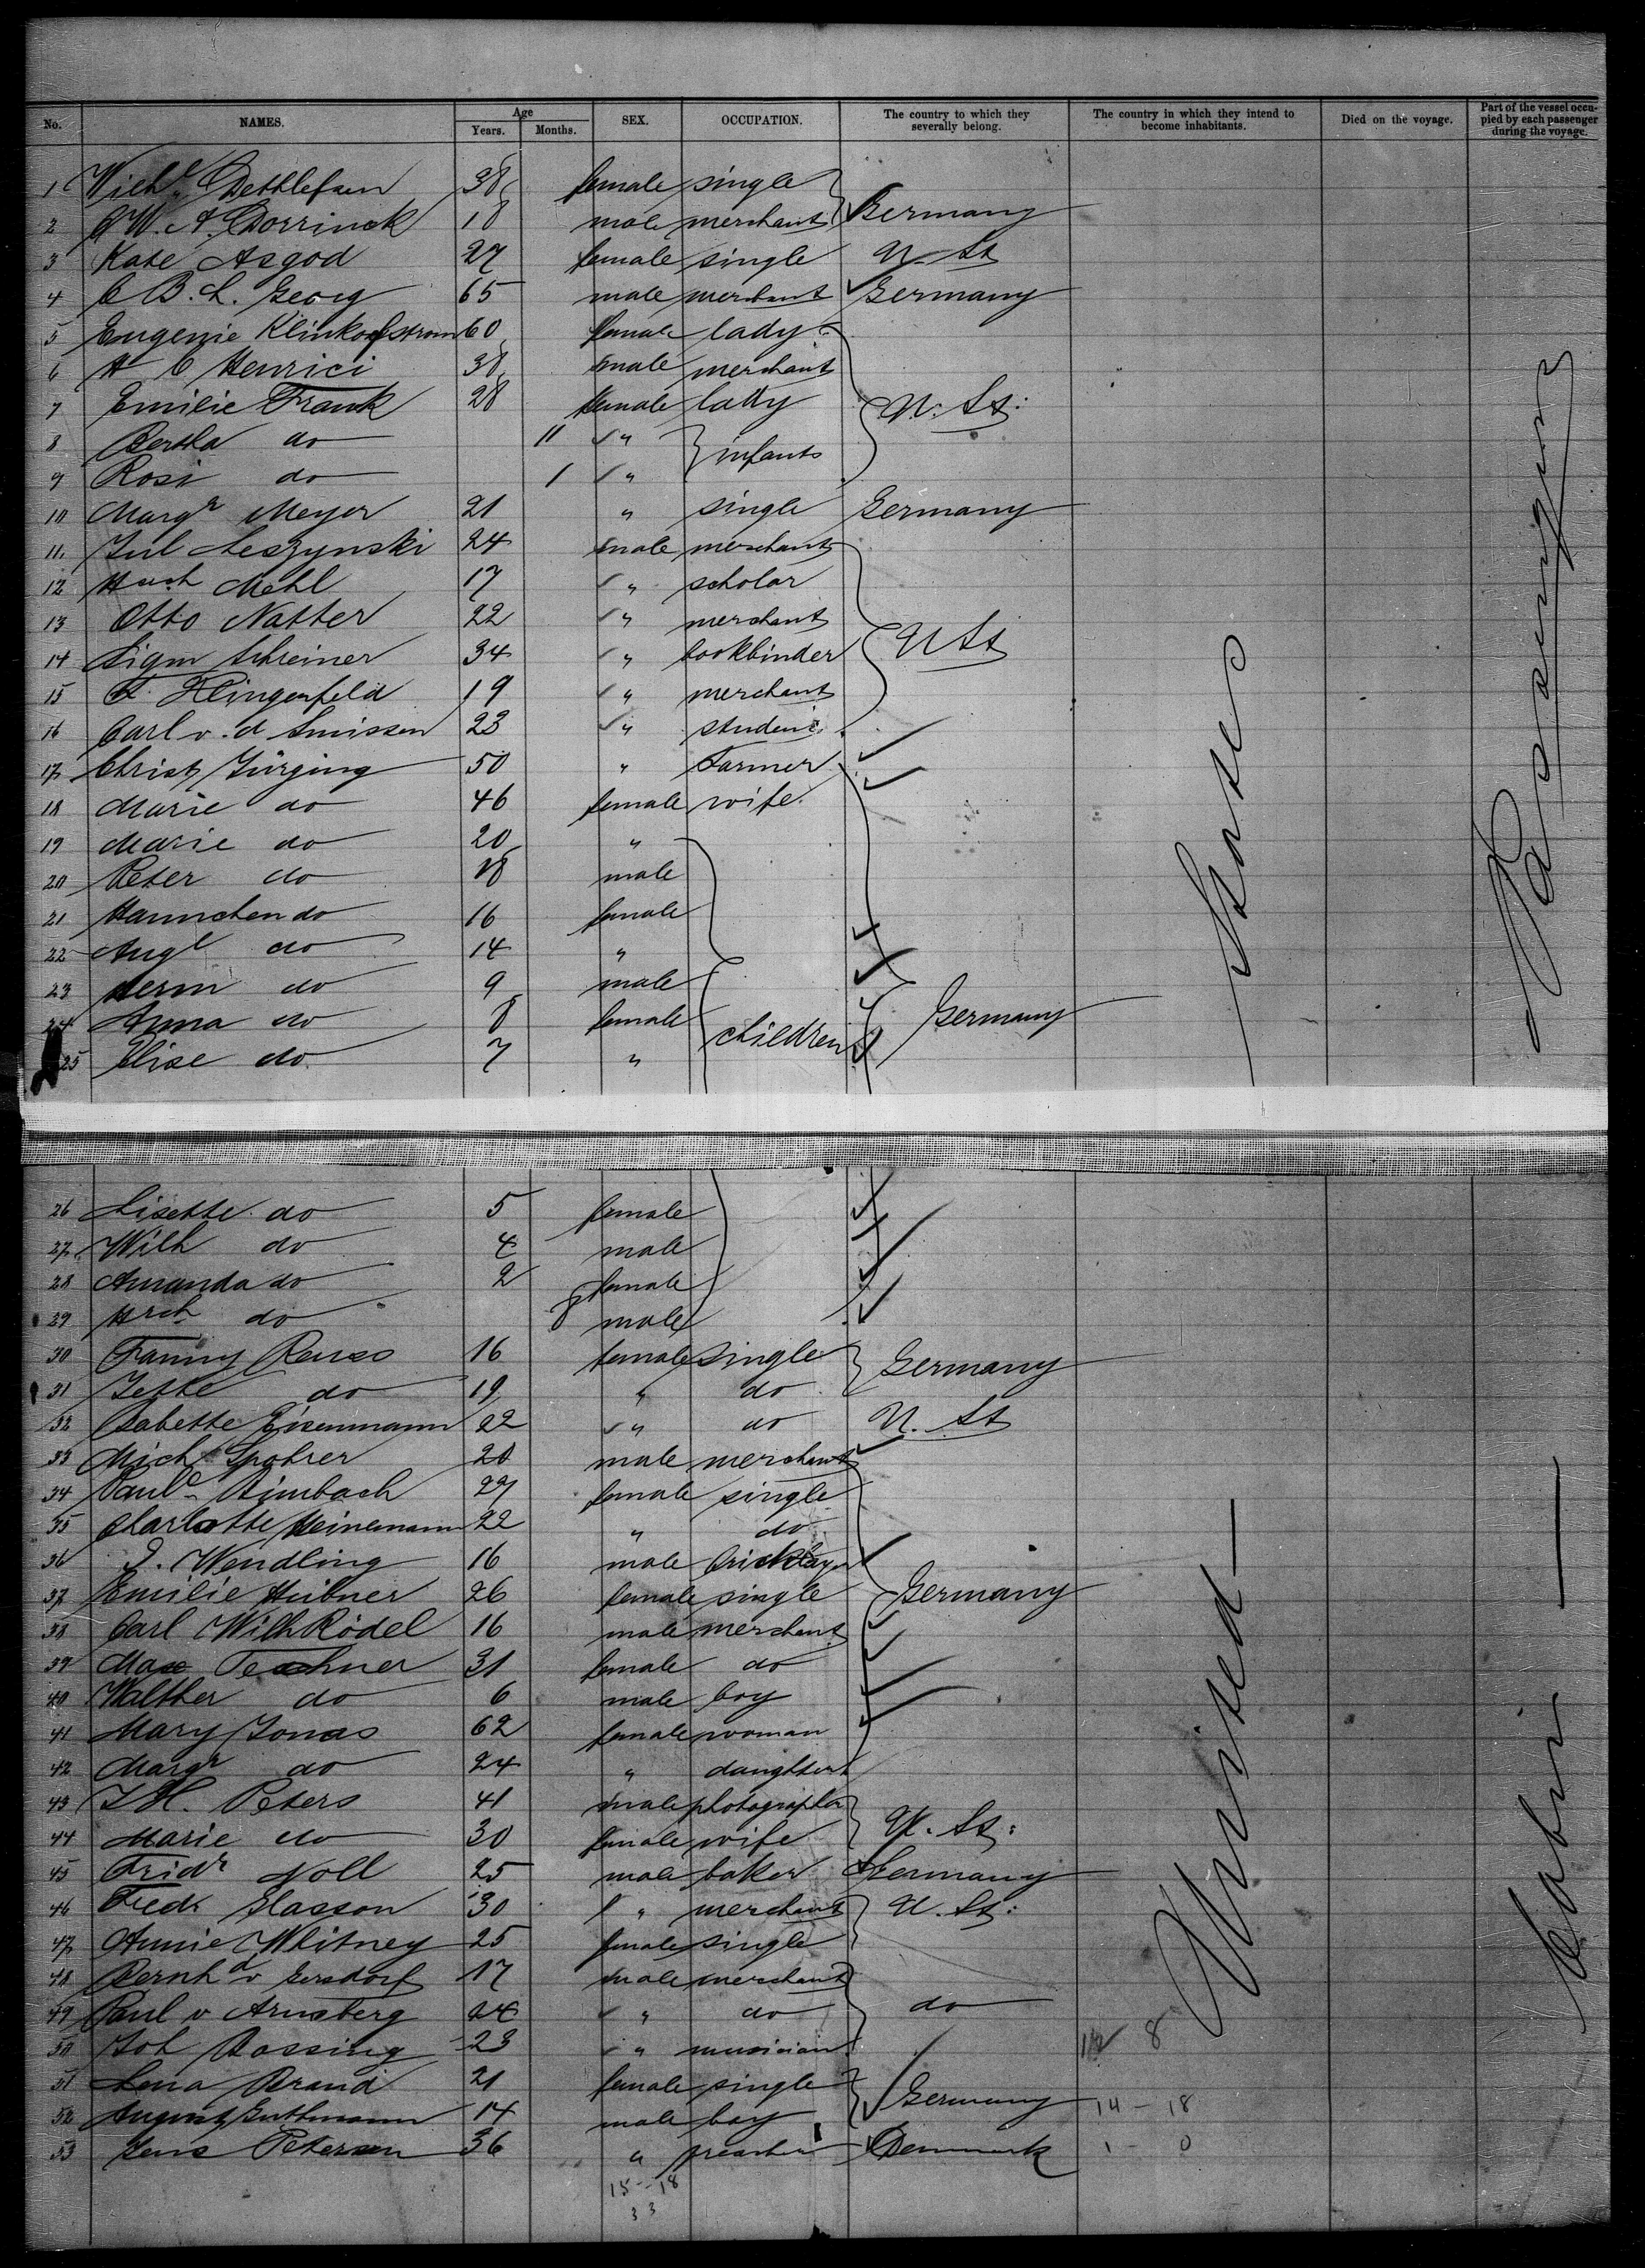 No. NAMES. Age Years. Months. SEX. OCCUPATION. The country to which they severally belong. The country in which they intend to become inhabitants. Died on the voyage. Part of the vessel occupied by each passenger during the voyage.
1 Wilh.e Dethlefsen 38 female single
2 W. A. Dorrinck 18 male merchant Germany
3 Kate Asgod 27 female single U St
4 C B. L. Georg 65 male merchant Germany
5 Eugenie Klinkowstrom 60 female lady
6 H C Henrici 38 male merchant
7 Emilie Frank 28 female lady U. St:
8 Bertha do 11 " infants
9 Rosi do 1 "
10 Margr Meyer 21 " single Germany
11. Jul Leszynski 24 male merchant
12 Hnch Mehl 17 " scholar
13 Otto Natter 22 " merchant
14 Sigm Schreiner 34 " bookbinder U St
15 F. Klingenfeld 19 " merchant
16 Carl v. d Smissen 23 " student
17 Christ Jürging 50 " Farmer
18 Marie do 46 female wife
19 Marie do 20 "
20 Peter do 18 male
21 Hannchen do 16 female
22 Augt do 14 "
23 Herm do 9 male
24 Anna do 8 female children Germany
25 Elise do 7 "
26 Lisette do 5 female
27 Wilh do 4 male
28 Amanda do 2 female
29 Hrch do 8 male
30 Fanny Reuss 16 female single Germany
31 Jette do 19 " do
32 Babette Eisenmann 22 " do U. St
33 Mich Spohrer 20 male merchant
34 Paul.e Rimbach 27 female single
35 Charlotte Heinemann 22 " do
36 J. Wendling 16 male bricklayer
37 Emilie Hübner 26 female single Germany
38 Carl Wilh Rödel 16 male merchant
39 Max Teschner 31 female do
40 Walther do 6 male boy
41 Mary Jonas 62 female woman
42 Margr do 24 " daughter
43 J H. Peters 41 male photographer
44 Marie do 30 female wife U. St:
45 Fridr Noll 25 male baker Germany
46 Fredr Glasson 30 " merchant U. St:
47 Annie Whitney 25 female single
48 Bernhd v Gersdorf 17 male merchant
49 Paul v Arnsberg 24 " do do
50 Joh Bossing 23 " musician 8
51 Lena Brand 21 female single
52 August Guthmann 14 male boy Germany 14 - 18
53 Jens Petersen 36 " preacher Denmark 1 - 0
15 - 18
33
United States
Cabin Passengers